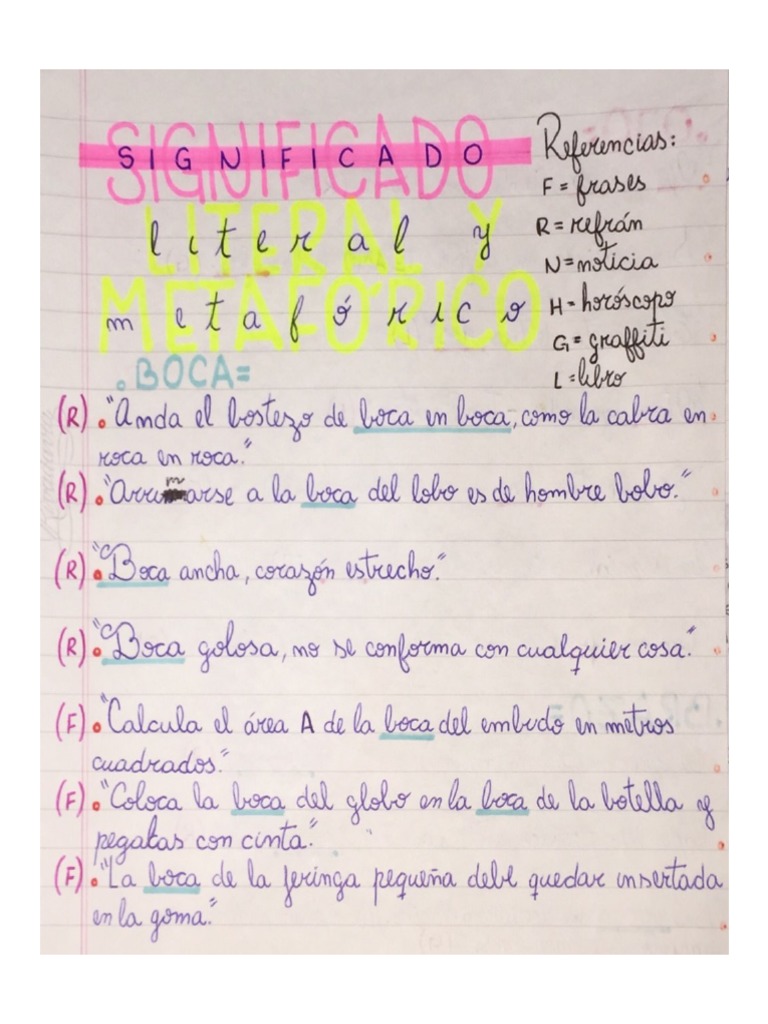 SIGNIFICADO
SIGNIFICADO
LITERAL Y
literal y
METAFÓRICO
metafórico
Referencias:
F = frases
R = refrán
N = noticia
H = horóscopo
G = graffiti
L = libro
. BOCA =
(R) . "Anda el bostezo de boca en boca, como la cabra en
roca en roca."
(R) . "Arrimarse a la boca del lobo es de hombre bobo."
(R) . "Boca ancha, corazón estrecho."
(R) . "Boca golosa, no se conforma con cualquier cosa."
(F) . "Calcula el área A de la boca del embudo en metros
cuadrados."
(F) . "Coloca la boca del globo en la boca de la botella y
pegalas con cinta."
(F) . "La boca de la jeringa pequeña debe quedar insertada
en la goma."